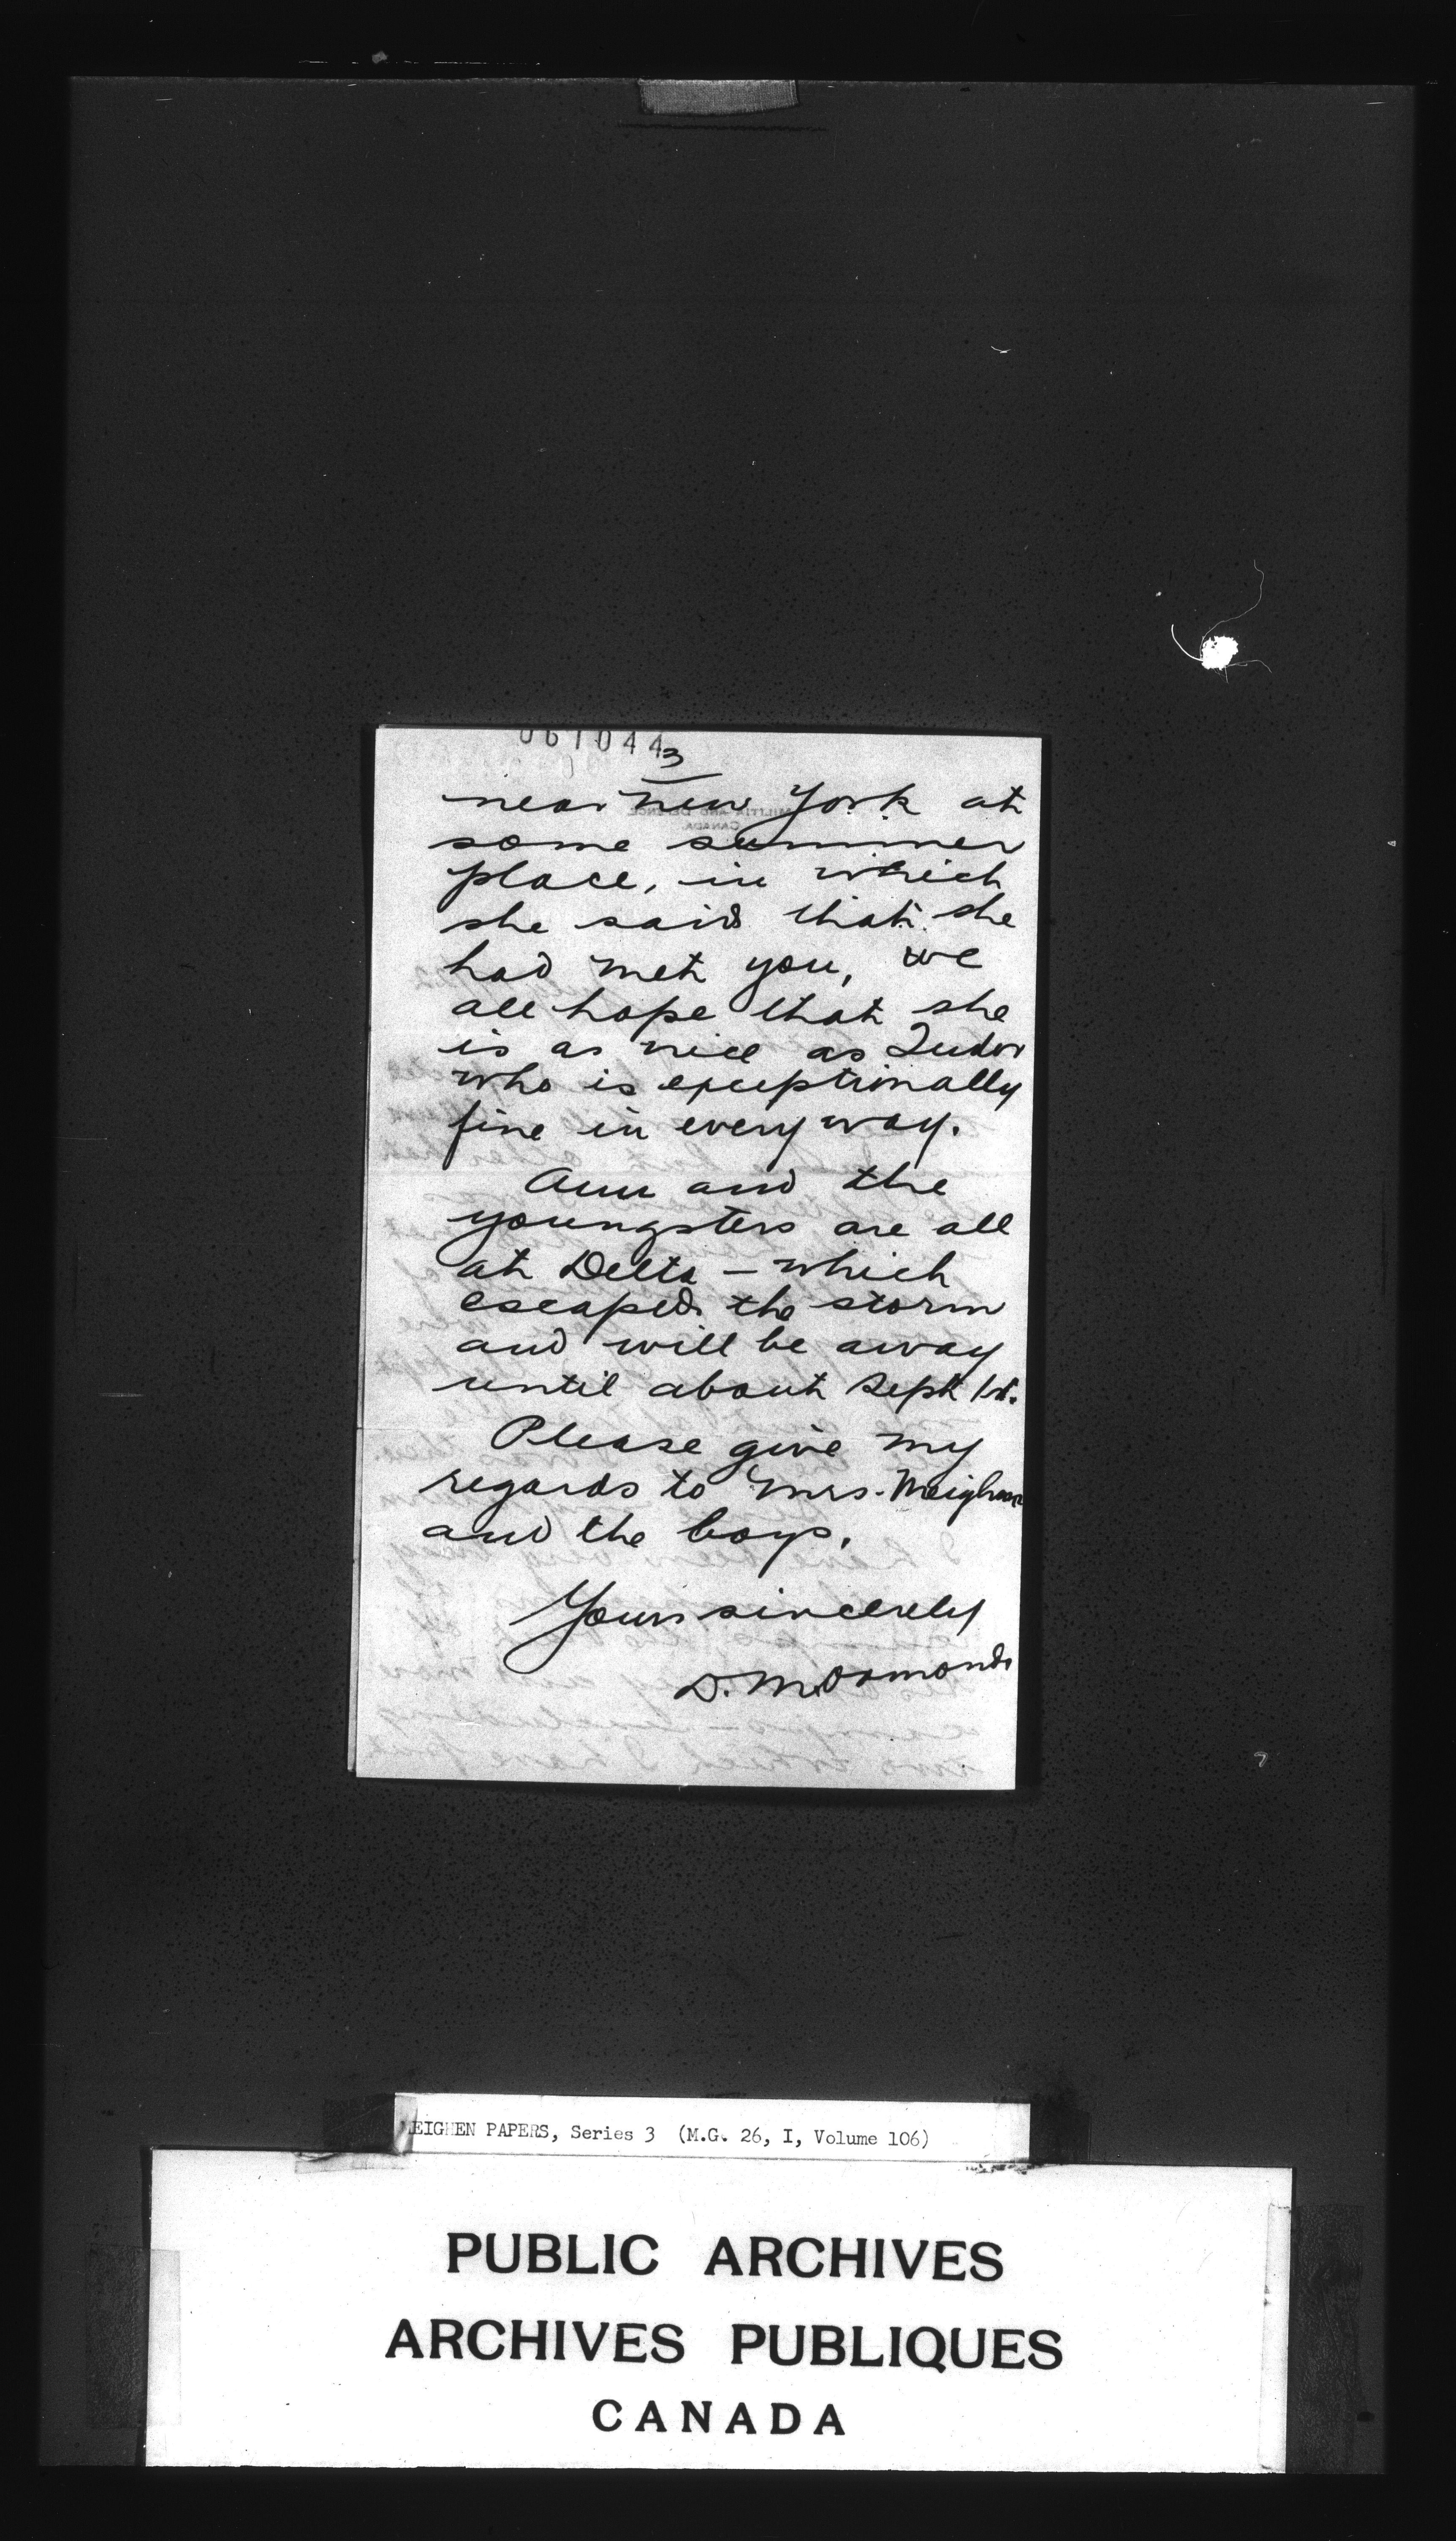 061044
3
near New York at
some summer
place, in which
she said that she
had met you, we
all hope that she
is as nice as Tudor
who is exceptionally
fine in every way.
Ann and the
youngsters are all
at Delta – which
escaped the storm
and will be away
until about Sept 1st.
Please give my
regards to Mrs. Meighen
and the boys.
Yours sincerely
D. M. Ormond
MEIGHEN PAPERS, Series 3 (M.G. 26, I, Volume 106)
PUBLIC ARCHIVES
ARCHIVES PUBLIQUES
CANADA